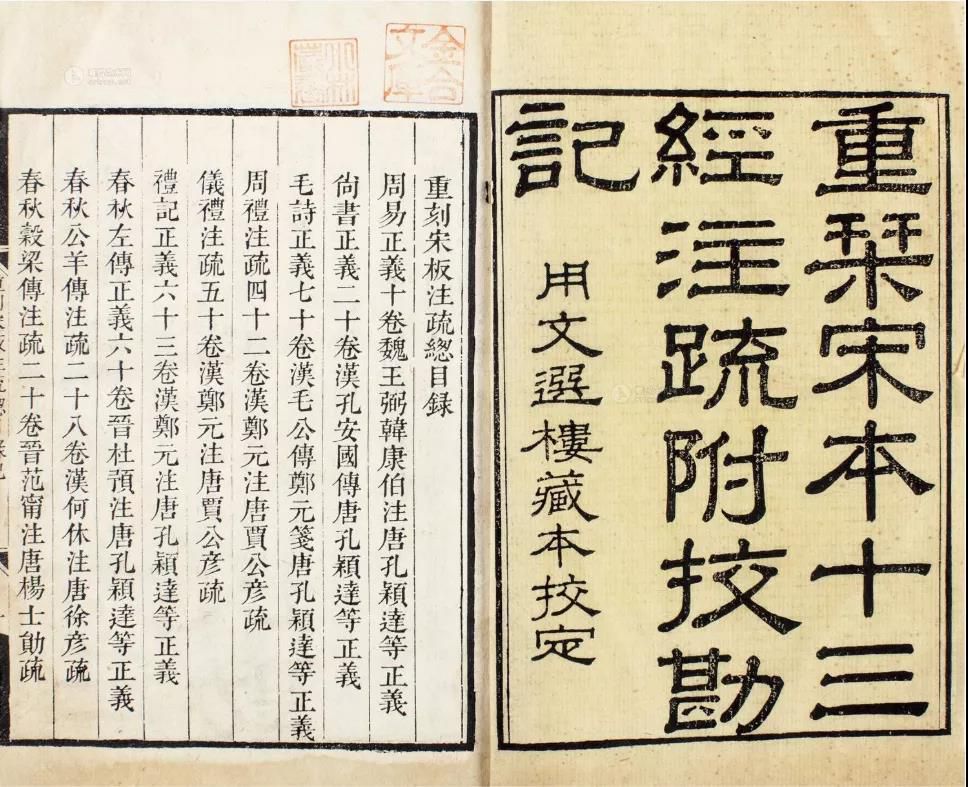 重栞宋本十三
經注疏附挍勘
記
用文選樓藏本挍定
重刻宋板注疏總目録
周易正義十卷魏王弼韓康伯注唐孔穎達等正義
尙書正義二十卷漢孔安國傳唐孔穎達等正義
毛詩正義七十卷漢毛公傳鄭元箋唐孔穎達等正義
周禮注疏四十二卷漢鄭元注唐賈公彦疏
儀禮注疏五十卷漢鄭元注唐賈公彦疏
禮記正義六十三卷漢鄭元注唐孔穎達等正義
春秋左傳正義六十卷晉杜預注唐孔穎達等正義
春秋公羊傳注疏二十八卷漢何休注唐徐彦疏
春秋穀梁傳注疏二十卷晉范甯注唐楊士勛疏
金合
文庫